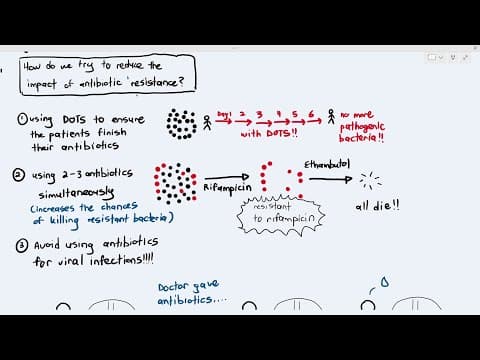 How do we try to reduce the
impact of antibiotic 'resistance?
① using DOTS to ensure
the patients finish
their antibiotics
Day1 2 3 4 5 6
with DOTS!!
no more
pathogenic
bacteria!!
② using 2-3 antibiotics
simultaneously
(increases the chances
of killing resistant bacteria)
Rifampicin
Ethambutol
resistant
to rifampicin
all die!!
③ Avoid using antibiotics
for viral infections!!!!
Doctor gave
antibiotics....